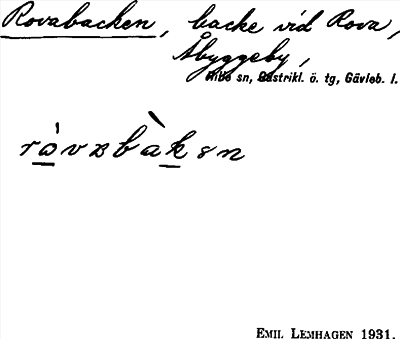 Rovabacken, backe vid Rova,
Åbyggeby,
Hille sn, Gästrikl. ö. tg, Gävleb. l.
EMIL LEMHAGEN 1931.